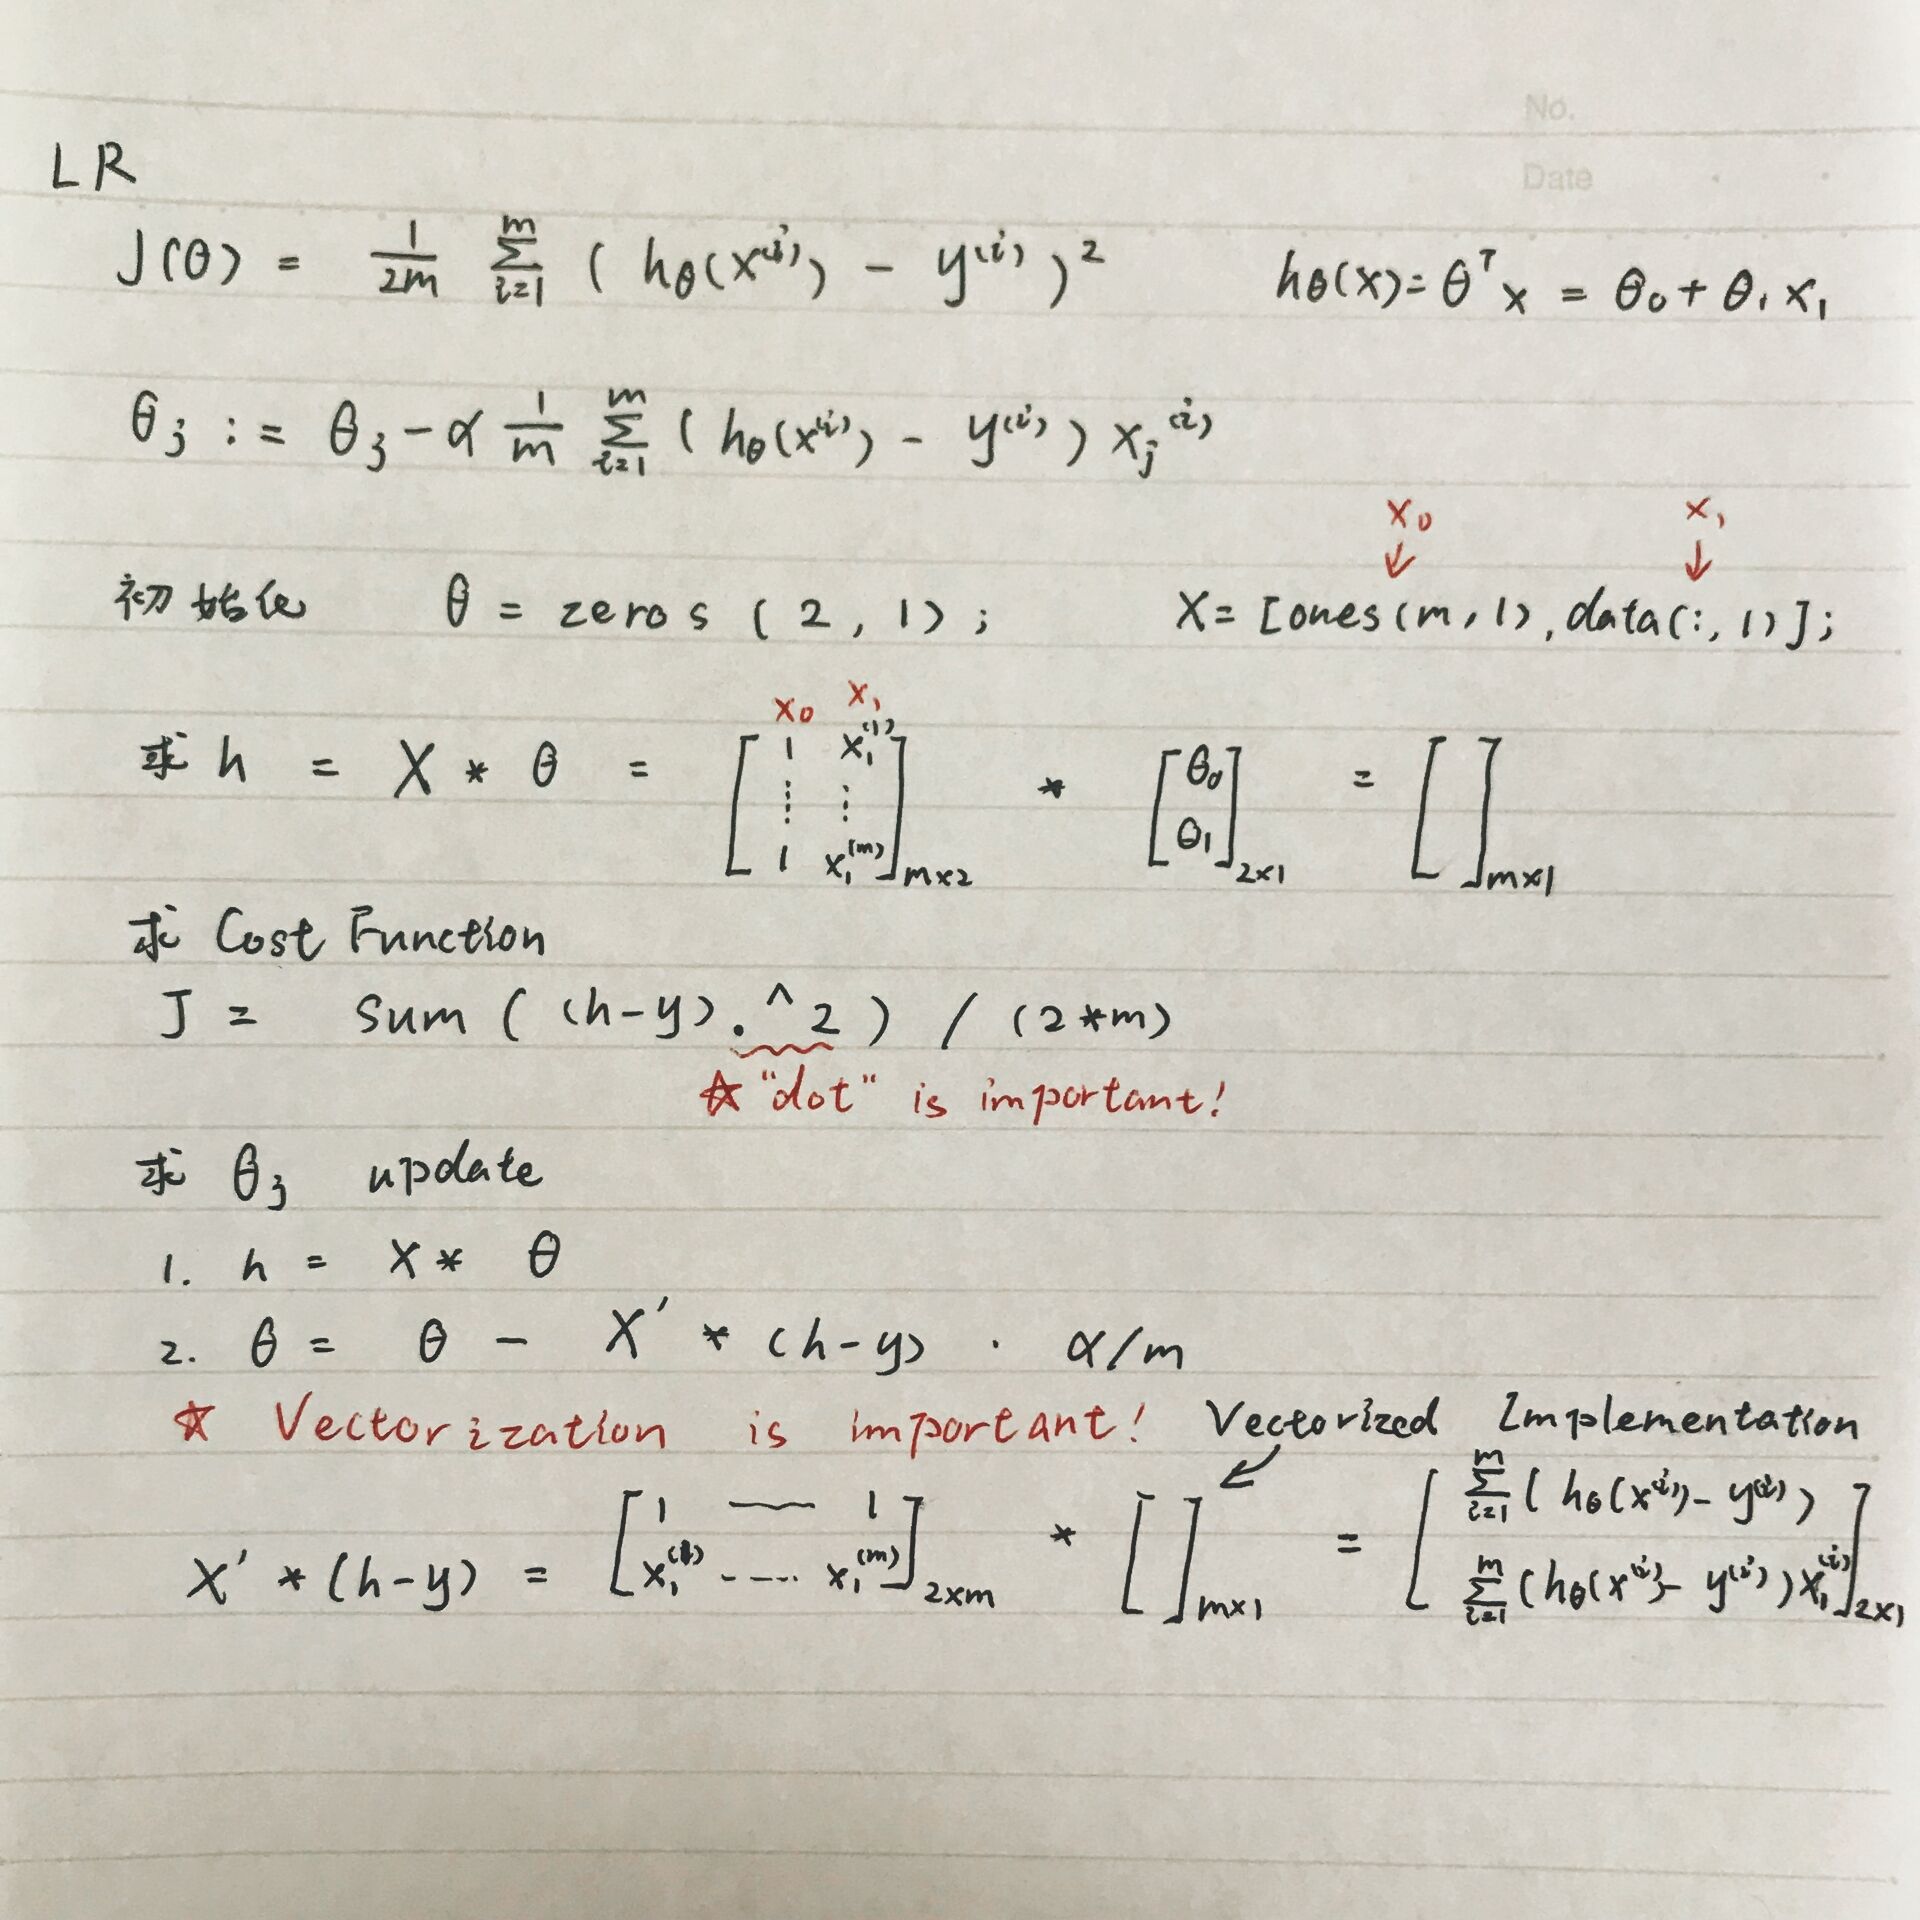 No.
Date
LR
J(θ) = 1/2m Σ_{i=1}^{m} ( hθ(x^(i)) - y^(i) )²    hθ(x) = θᵀx = θ₀ + θ₁x₁
θj := θj - α 1/m Σ_{i=1}^{m} ( hθ(x^(i)) - y^(i) ) xj^(i)
x₀ x₁
↓ ↓
初始化 θ = zeros ( 2 , 1 ) ; X = [ones(m,1), data(:,1)];
x₀ x₁
求 h = X * θ = [1 x₁^(1) ⋮ ⋮ 1 x₁^(m)]m×2 * [θ₀ θ₁]2×1 = [ ]m×1
求 Cost Function
J = sum ( (h-y) .^2 ) / (2*m)
☆ "dot" is important!
求 θj update
1. h = X * θ
2. θ = θ - X' * (h-y) · α/m
☆ Vectorization is important! Vectorized Implementation
X' * (h-y) = [1 — 1 x₁^(1) ---- x₁^(m)]2×m * [ ]m×1 = [Σ_{i=1}^{m} ( hθ(x^(i)) - y^(i) ) Σ_{i=1}^{m} (hθ(x^(i)) - y^(i)) x₁^(i)]2×1